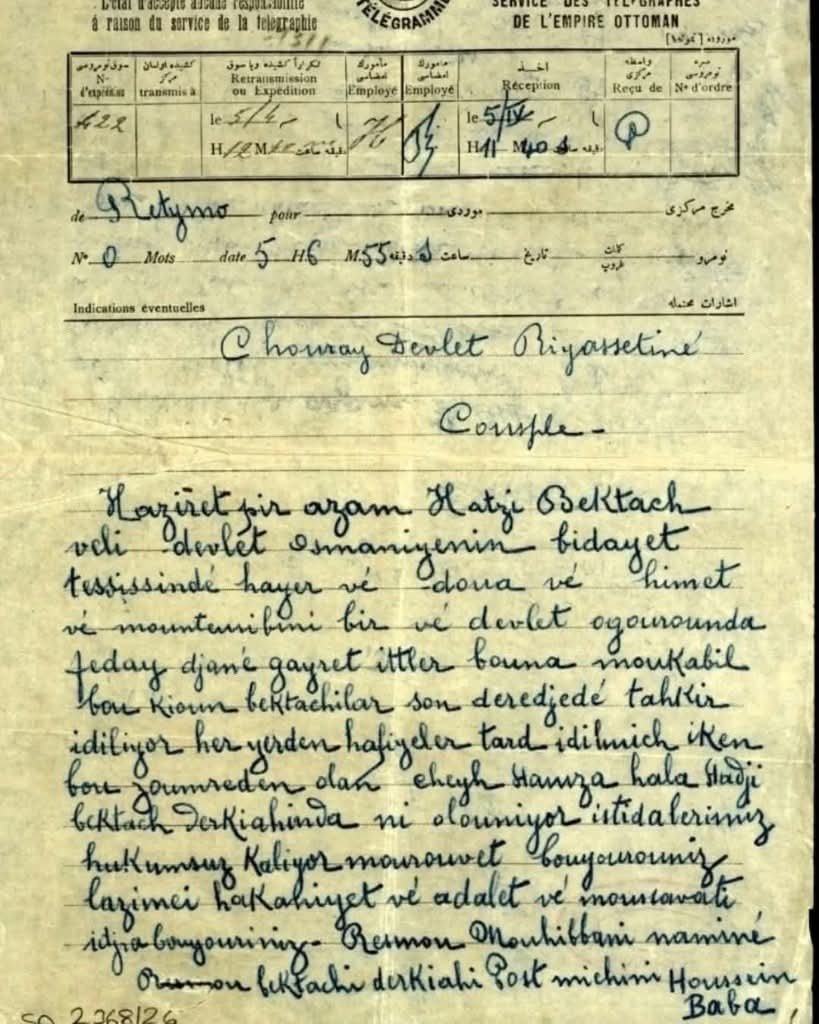 L'État n'accepte aucune responsabilité
à raison du service de la télégraphie
TÉLÉGRAMME
SERVICE DES TÉLÉGRAPHES
DE L'EMPIRE OTTOMAN
N° d'expédition
transmis à
Retransmission ou Expédition
Employé
Employé
Réception
Reçu de
N° d'ordre
422
le 5/4
le 5/IV
H 12 M
H 11 M 40 s
de Retymo pour موردی مخرج مركزی
N° 0 Mots date 5 H 6 M. 55 دقیقه s ساعت تاریخ كلمات غروپ نومرو
Indications éventuelles اشارات محتمله
Chouray Devlet Riyassetiné
Consple -
Haziret pir azam Hatzi Bektach
veli devlét osmaniyenin bidayet
tessissindé hayer vé doua vé himet
vé mountessibini bir vé devlet ogourounda
feday djané gayret ittler bouna moukabil
bou kioun bektachilar son deredjedé tahkir
idiliyor her yerden hafiyeler tard idilmich iken
bou zoumreden olan cheyh Hamza hala Hadji
bektach derkiahinda ni olouniyor istidalerimiz
hukumsuz kaliyor mourouvet bouyourouniz
lazimei hakahiyet vé adalet vé moussavati
idjra bouyouriniz - Resmou Mouhibbani naminé
bektachi derkiahi Post nichini Houssein
Baba
2768/26